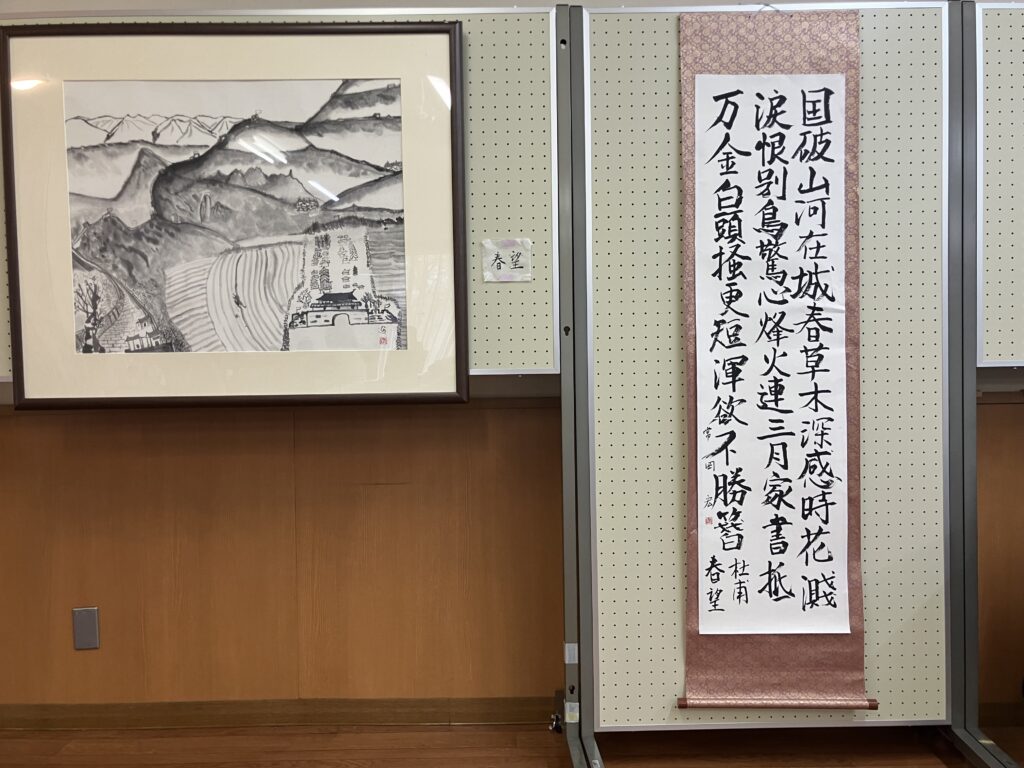 春望
国破山河在城春草木深感時花濺
涙恨別鳥驚心烽火連三月家書抵
万金白頭掻更短渾欲不勝簪
杜甫
春望
常岡 宏